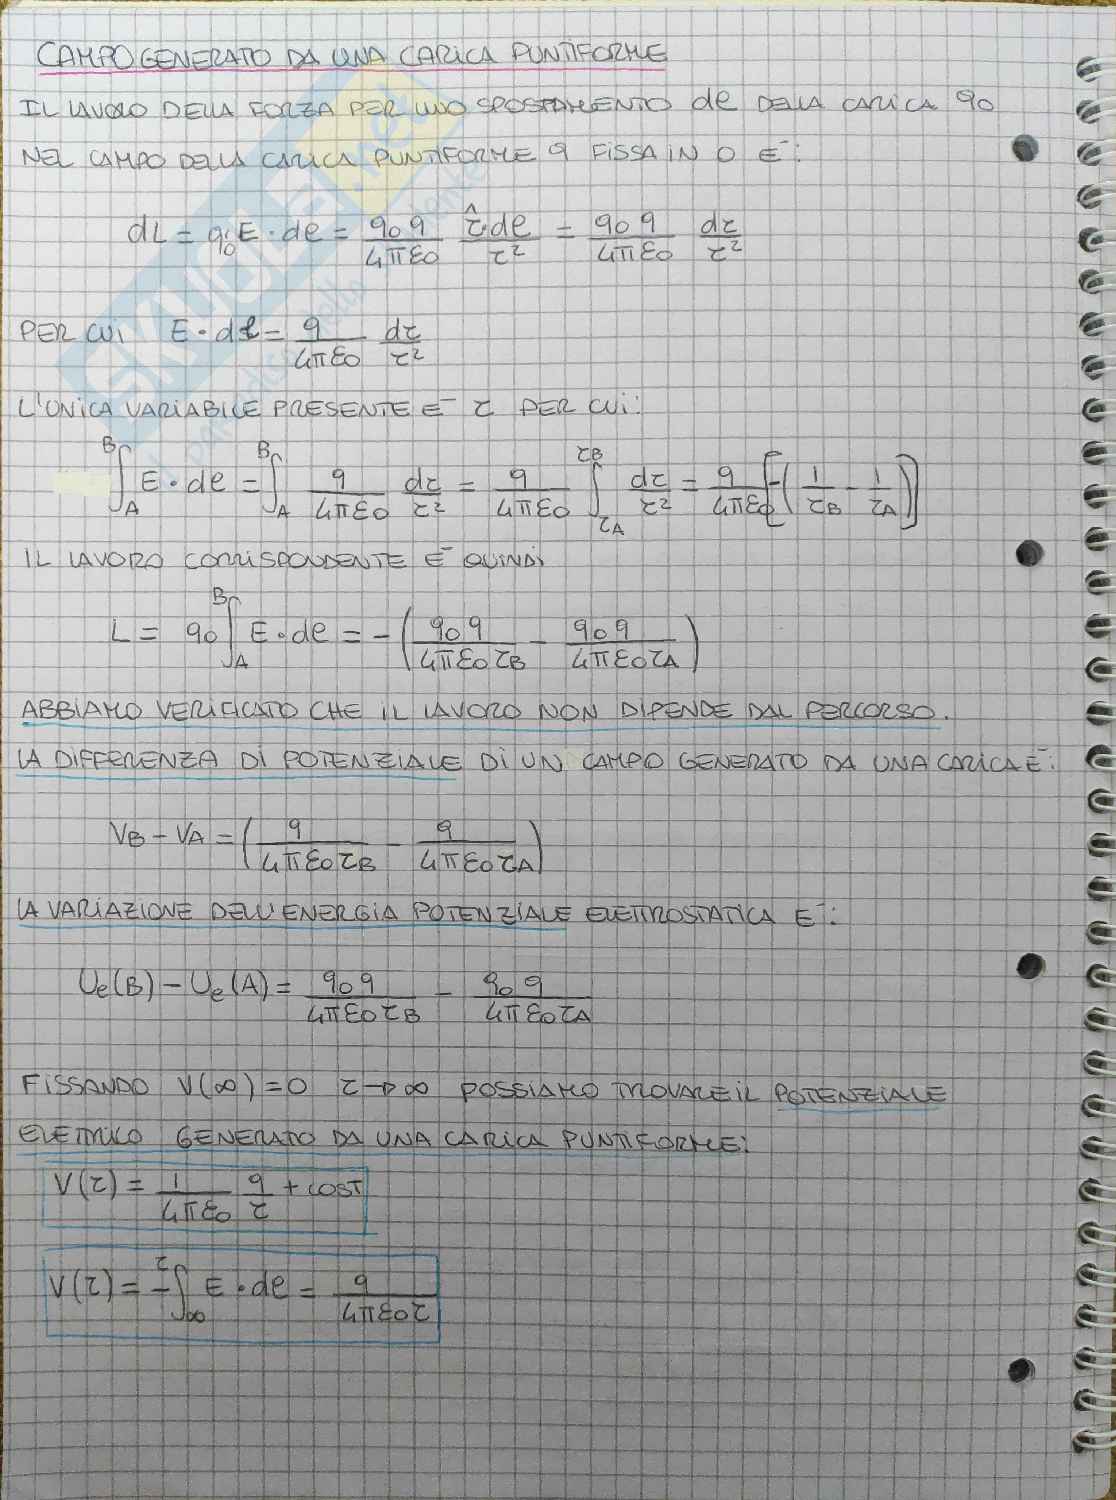 CAMPO GENERATO DA UNA CARICA PUNTIFORME
IL LAVORO DELLA FORZA PER UNO SPOSTAMENTO dl DELLA CARICA q0
NEL CAMPO DELLA CARICA PUNTIFORME q FISSA IN O È:
dL = q0 E · dl = q0q/4πε0 r̂·dl/r² = q0q/4πε0 dr/r²
PER CUI E · dl = q/4πε0 dr/r²
L'UNICA VARIABILE PRESENTE È r PER CUI:
∫_A^B E · dl = ∫_A^B q/4πε0 dr/r² = q/4πε0 ∫_rA^rB dr/r² = q/4πε0 [-(1/rB - 1/rA)]
IL LAVORO CORRISPONDENTE È QUINDI
L = q0 ∫_A^B E · dl = -(q0q/4πε0rB - q0q/4πε0rA)
ABBIAMO VERIFICATO CHE IL LAVORO NON DIPENDE DAL PERCORSO.
LA DIFFERENZA DI POTENZIALE DI UN CAMPO GENERATO DA UNA CARICA È:
VB - VA = (q/4πε0rB - q/4πε0rA)
LA VARIAZIONE DELL'ENERGIA POTENZIALE ELETTROSTATICA È:
Ue(B) - Ue(A) = q0q/4πε0rB - q0q/4πε0rA
FISSANDO V(∞) = 0 r→∞ POSSIAMO TROVARE IL POTENZIALE
ELETTRICO GENERATO DA UNA CARICA PUNTIFORME:
V(r) = 1/4πε0 q/r + COST
V(r) = -∫_∞^r E · dl = q/4πε0r
SKUOLA.net
il paradiso dello studente